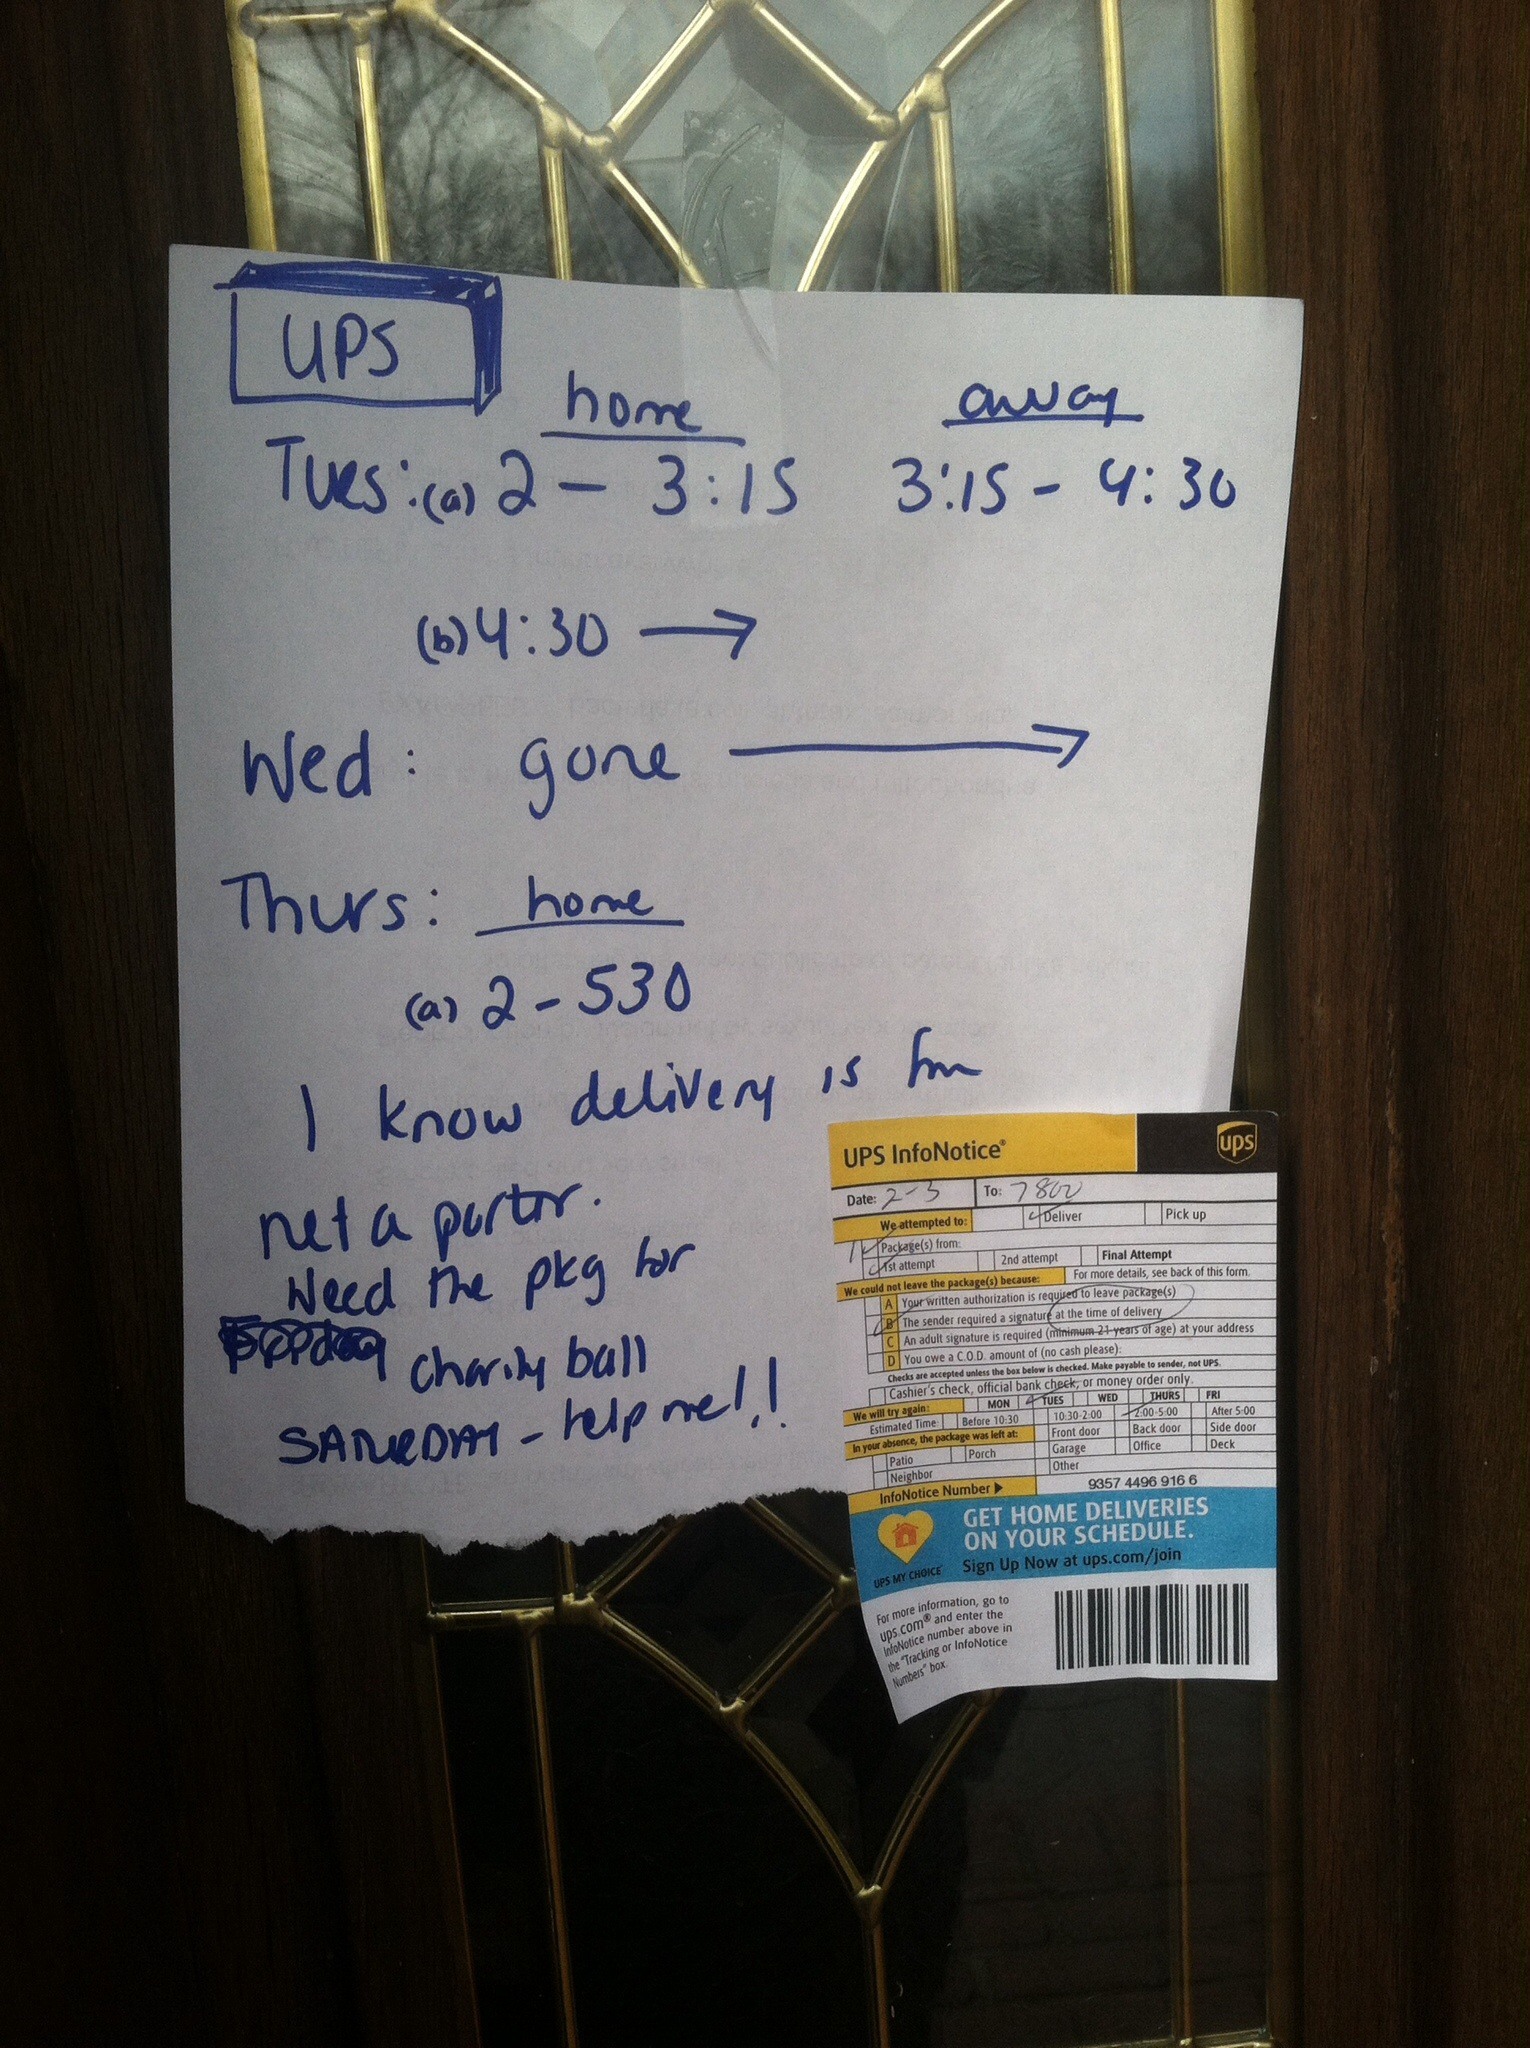 UPS
home away
Tues: (a) 2 - 3:15 3:15 - 4:30
(b) 4:30 →
Wed: gone →
Thurs: home
(a) 2 - 530
I know delivery is
net a
Need the pkg for
charity ball
SATURDAY - help me!!
UPS InfoNotice®
ups
Date: 2-3 To: 7800
We attempted to: Deliver Pick up
1 Package(s) from:
1st attempt 2nd attempt Final Attempt
We could not leave the package(s) because: For more details, see back of this form.
A Your written authorization is required to leave package(s)
B The sender required a signature at the time of delivery
C An adult signature is required (minimum 21 years of age) at your address
D You owe a C.O.D. amount of (no cash please):
Checks are accepted unless the box below is checked. Make payable to sender, not UPS.
Cashier's check, official bank check, or money order only.
We will try again: MON TUES WED THURS FRI
Estimated Time: Before 10:30 10:30-2:00 2:00-5:00 After 5:00
In your absence, the package was left at: Front door Back door Side door
Patio Porch Garage Office Deck
Neighbor Other
InfoNotice Number ▶ 9357 4496 916 6
GET HOME DELIVERIES
ON YOUR SCHEDULE.
Sign Up Now at ups.com/join
UPS MY CHOICE
For more information, go to
ups.com® and enter the
InfoNotice number above in
the "Tracking or InfoNotice
Numbers" box.